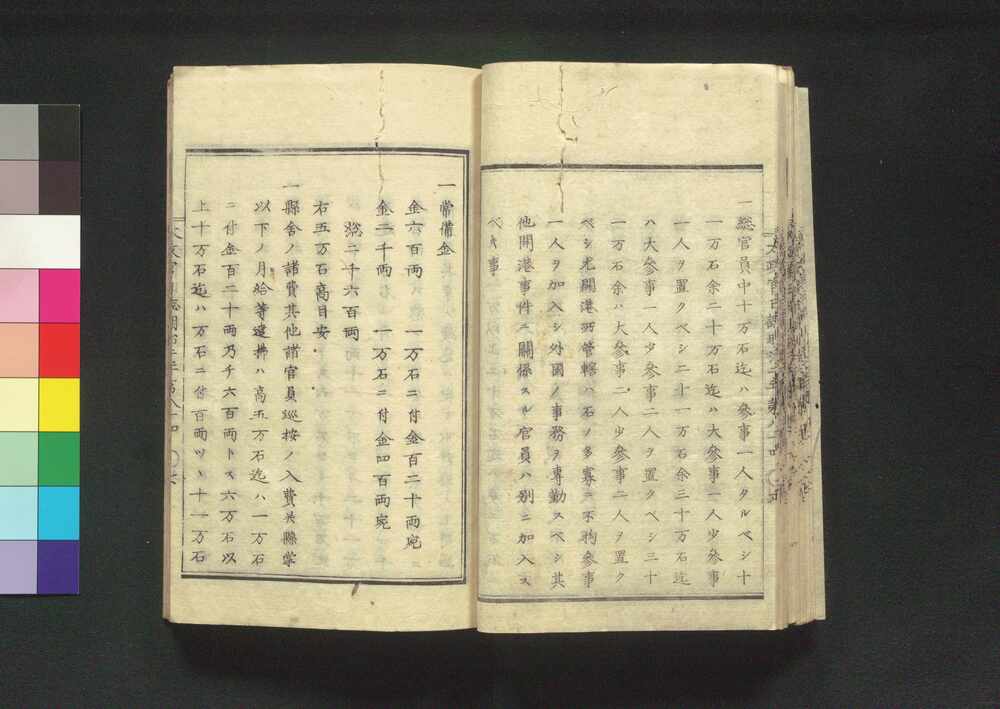 一總官員中十万石迄ハ參事一人タルベシ十
一万石余二十万石迄ハ大參事一人少參事
一人ヲ置クベシ二十一万石余三十万石迄
ハ大參事一人少參事二人ヲ置クベシ三十
一万石余ハ大參事二人少參事二人ヲ置ク
ベシ尤開港所管轄ハ石ノ多寡ニ不拘參事
一人ヲ加入シ外國ノ事務ヲ專勤スベシ其
他開港事件ニ關係スル官員ハ別ニ加入ス
ベキ事
一常備金
金六百両 一万石ニ付金百二十両宛
金二千両 一万石ニ付金四百両宛
總二千六百両
右五万石高目安
一縣舍ノ諸費其他諸官員巡按ノ入費共縣掌
以下ノ月給等遣拂ハ高五万石迄ハ一万石
ニ付金百二十両乃チ六百両トス六万石以
上十万石迄ハ万石ニ付百両ツヽ十一万石